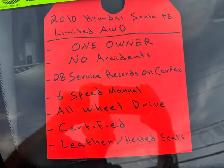 2010 Hyundai Santa Fe
Limited AWD
ONE OWNER
No Accidents
- 28 Service Records On Carfax
- 6 Speed Manual
- All Wheel Drive
- Certified
- Leather/Heated Seats